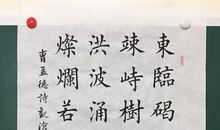 東臨碣
竦峙樹
洪波涌
燦爛若
曹孟德詩觀滄